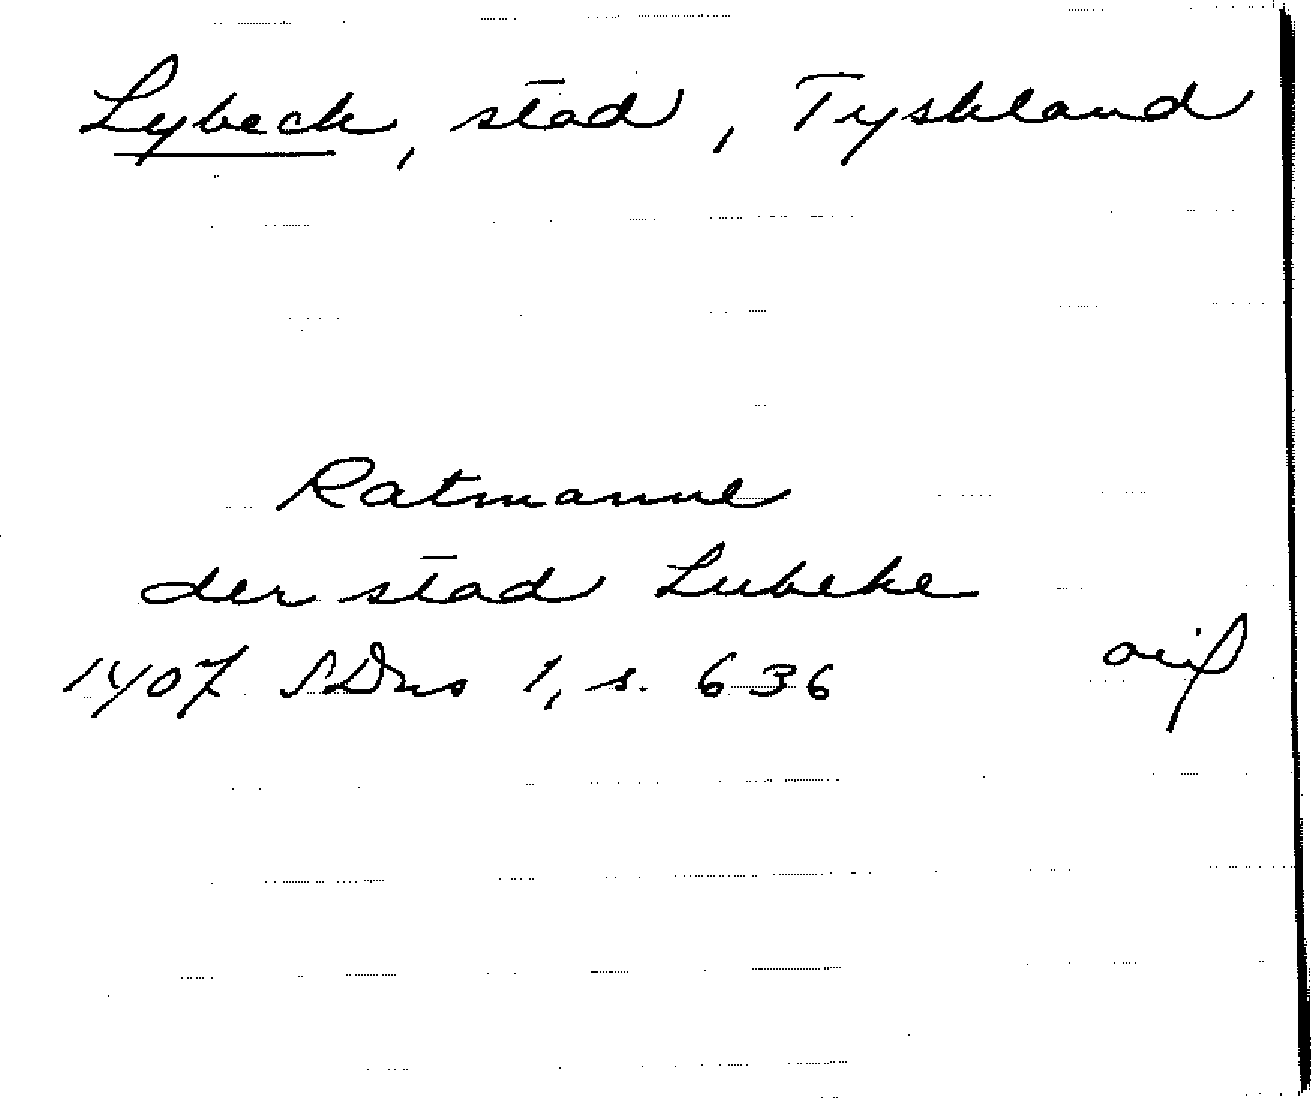 Lybeck, stad, Tyskland
Ratmanne
der stad Lubeke
1407 SDns 1, s. 636